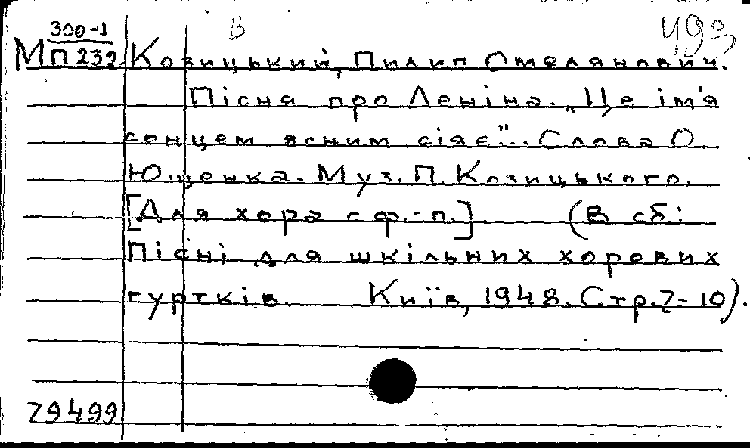 300-1 В
Мп232 Козицький, Пилип Омелянович.
Пісня про Леніна. „Це ім'я
сонцем ясним сіяє". Слова О.
Ющенка. Муз. П. Козицького.
[Для хора с ф.-п.] (В сб:
Пісні для шкільних хорових
гуртків. Київ, 1948. Стр. 7-10).
29499